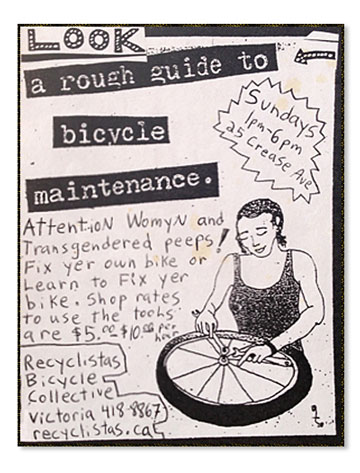 LOOK
a rough guide to
bicycle
maintenance.
Sundays
1pm-6pm
25 Crease Ave
Attention Womyn and
Transgendered peeps!
Fix yer own bike or
Learn to Fix yer
bike. Shop rates
to use the tools
are $5.00-$10.00 per hour
Recyclistas
Bicycle
Collective
Victoria 418-8867
recyclistas.ca